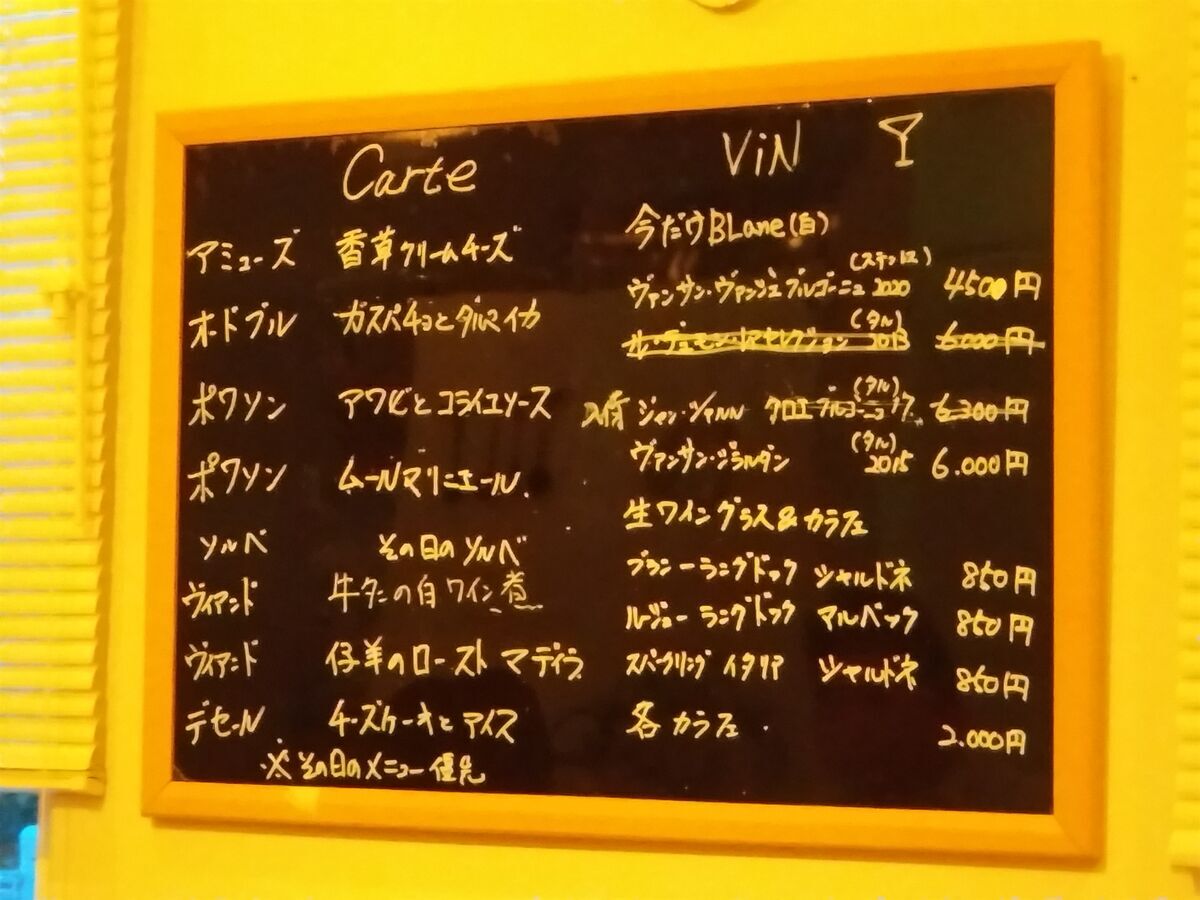 Carte
アミューズ 香草クリームチーズ
オードブル ガスパチョとダルマイカ
ポワソン アワビとコライユソース
ポワソン ムールマリニエール
ソルベ その日のソルベ
ヴィアンド 牛タンの白ワイン煮
ヴィアンド 仔羊のロースト マディラ
デセール チーズケーキとアイス
※その日のメニュー優先
ViN
今だけBLanc(白)
(ステンレス)
ヴァンサン・ヴァンジェ ブルゴーニュ 2020 4500円
(タル)
セレクション 2013 6000円
(タル)
入荷 ジャン・シャルル ブルゴーニュ 17 6300円
(タル)
ヴァンサン・ジラルダン 2015 6.000円
生ワイングラス&カラフェ
ブラン ー ラングドック シャルドネ 850円
ルージュー ラングドック マルベック 850円
スパークリング イタリア シャルドネ 850円
各カラフェ 2.000円